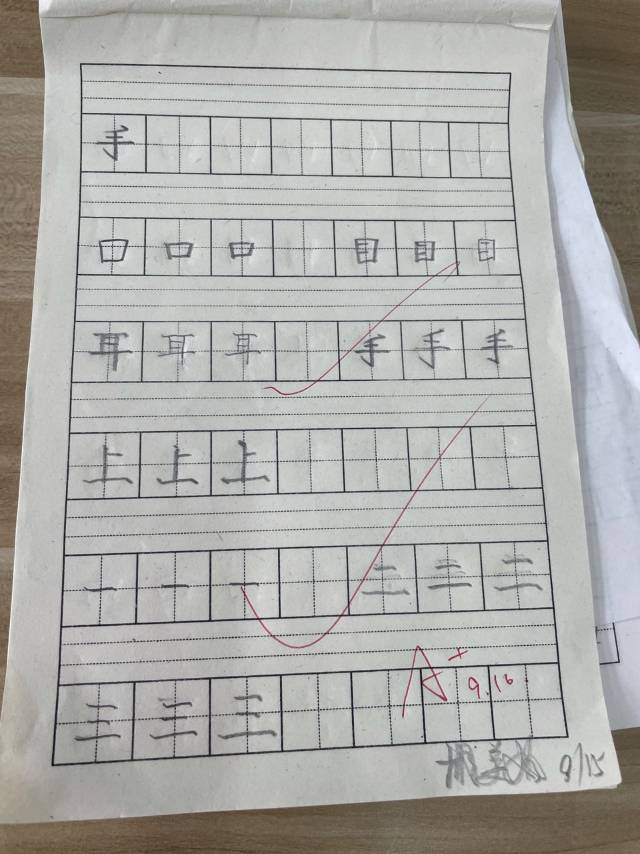 手
口 口 口 目 目 目
耳 耳 耳 手 手 手
上 上 上
一 一 一 二 二 二
三 三 三
A+ 9.16.
9/15